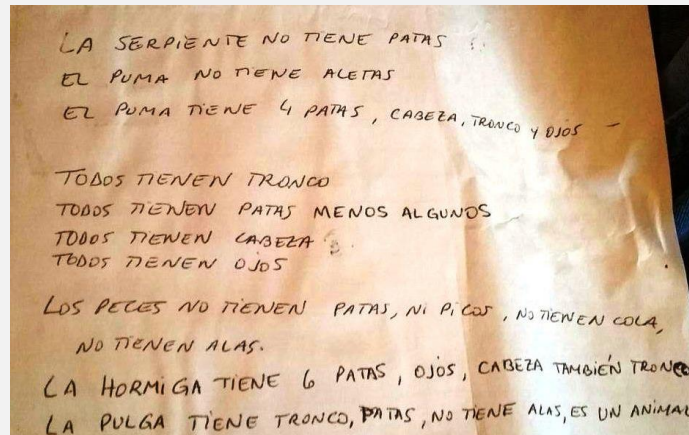 LA SERPIENTE NO TIENE PATAS
EL PUMA NO TIENE ALETAS
EL PUMA TIENE 4 PATAS, CABEZA, TRONCO Y OJOS -
TODOS TIENEN TRONCO
TODOS TIENEN PATAS MENOS ALGUNOS
TODOS TIENEN CABEZA
TODOS TIENEN OJOS
LOS PECES NO TIENEN PATAS, NI PICOS, NO TIENEN COLA,
NO TIENEN ALAS.
LA HORMIGA TIENE 6 PATAS, OJOS, CABEZA TAMBIÉN TRONCO
LA PULGA TIENE TRONCO, PATAS, NO TIENE ALAS, ES UN ANIMAL